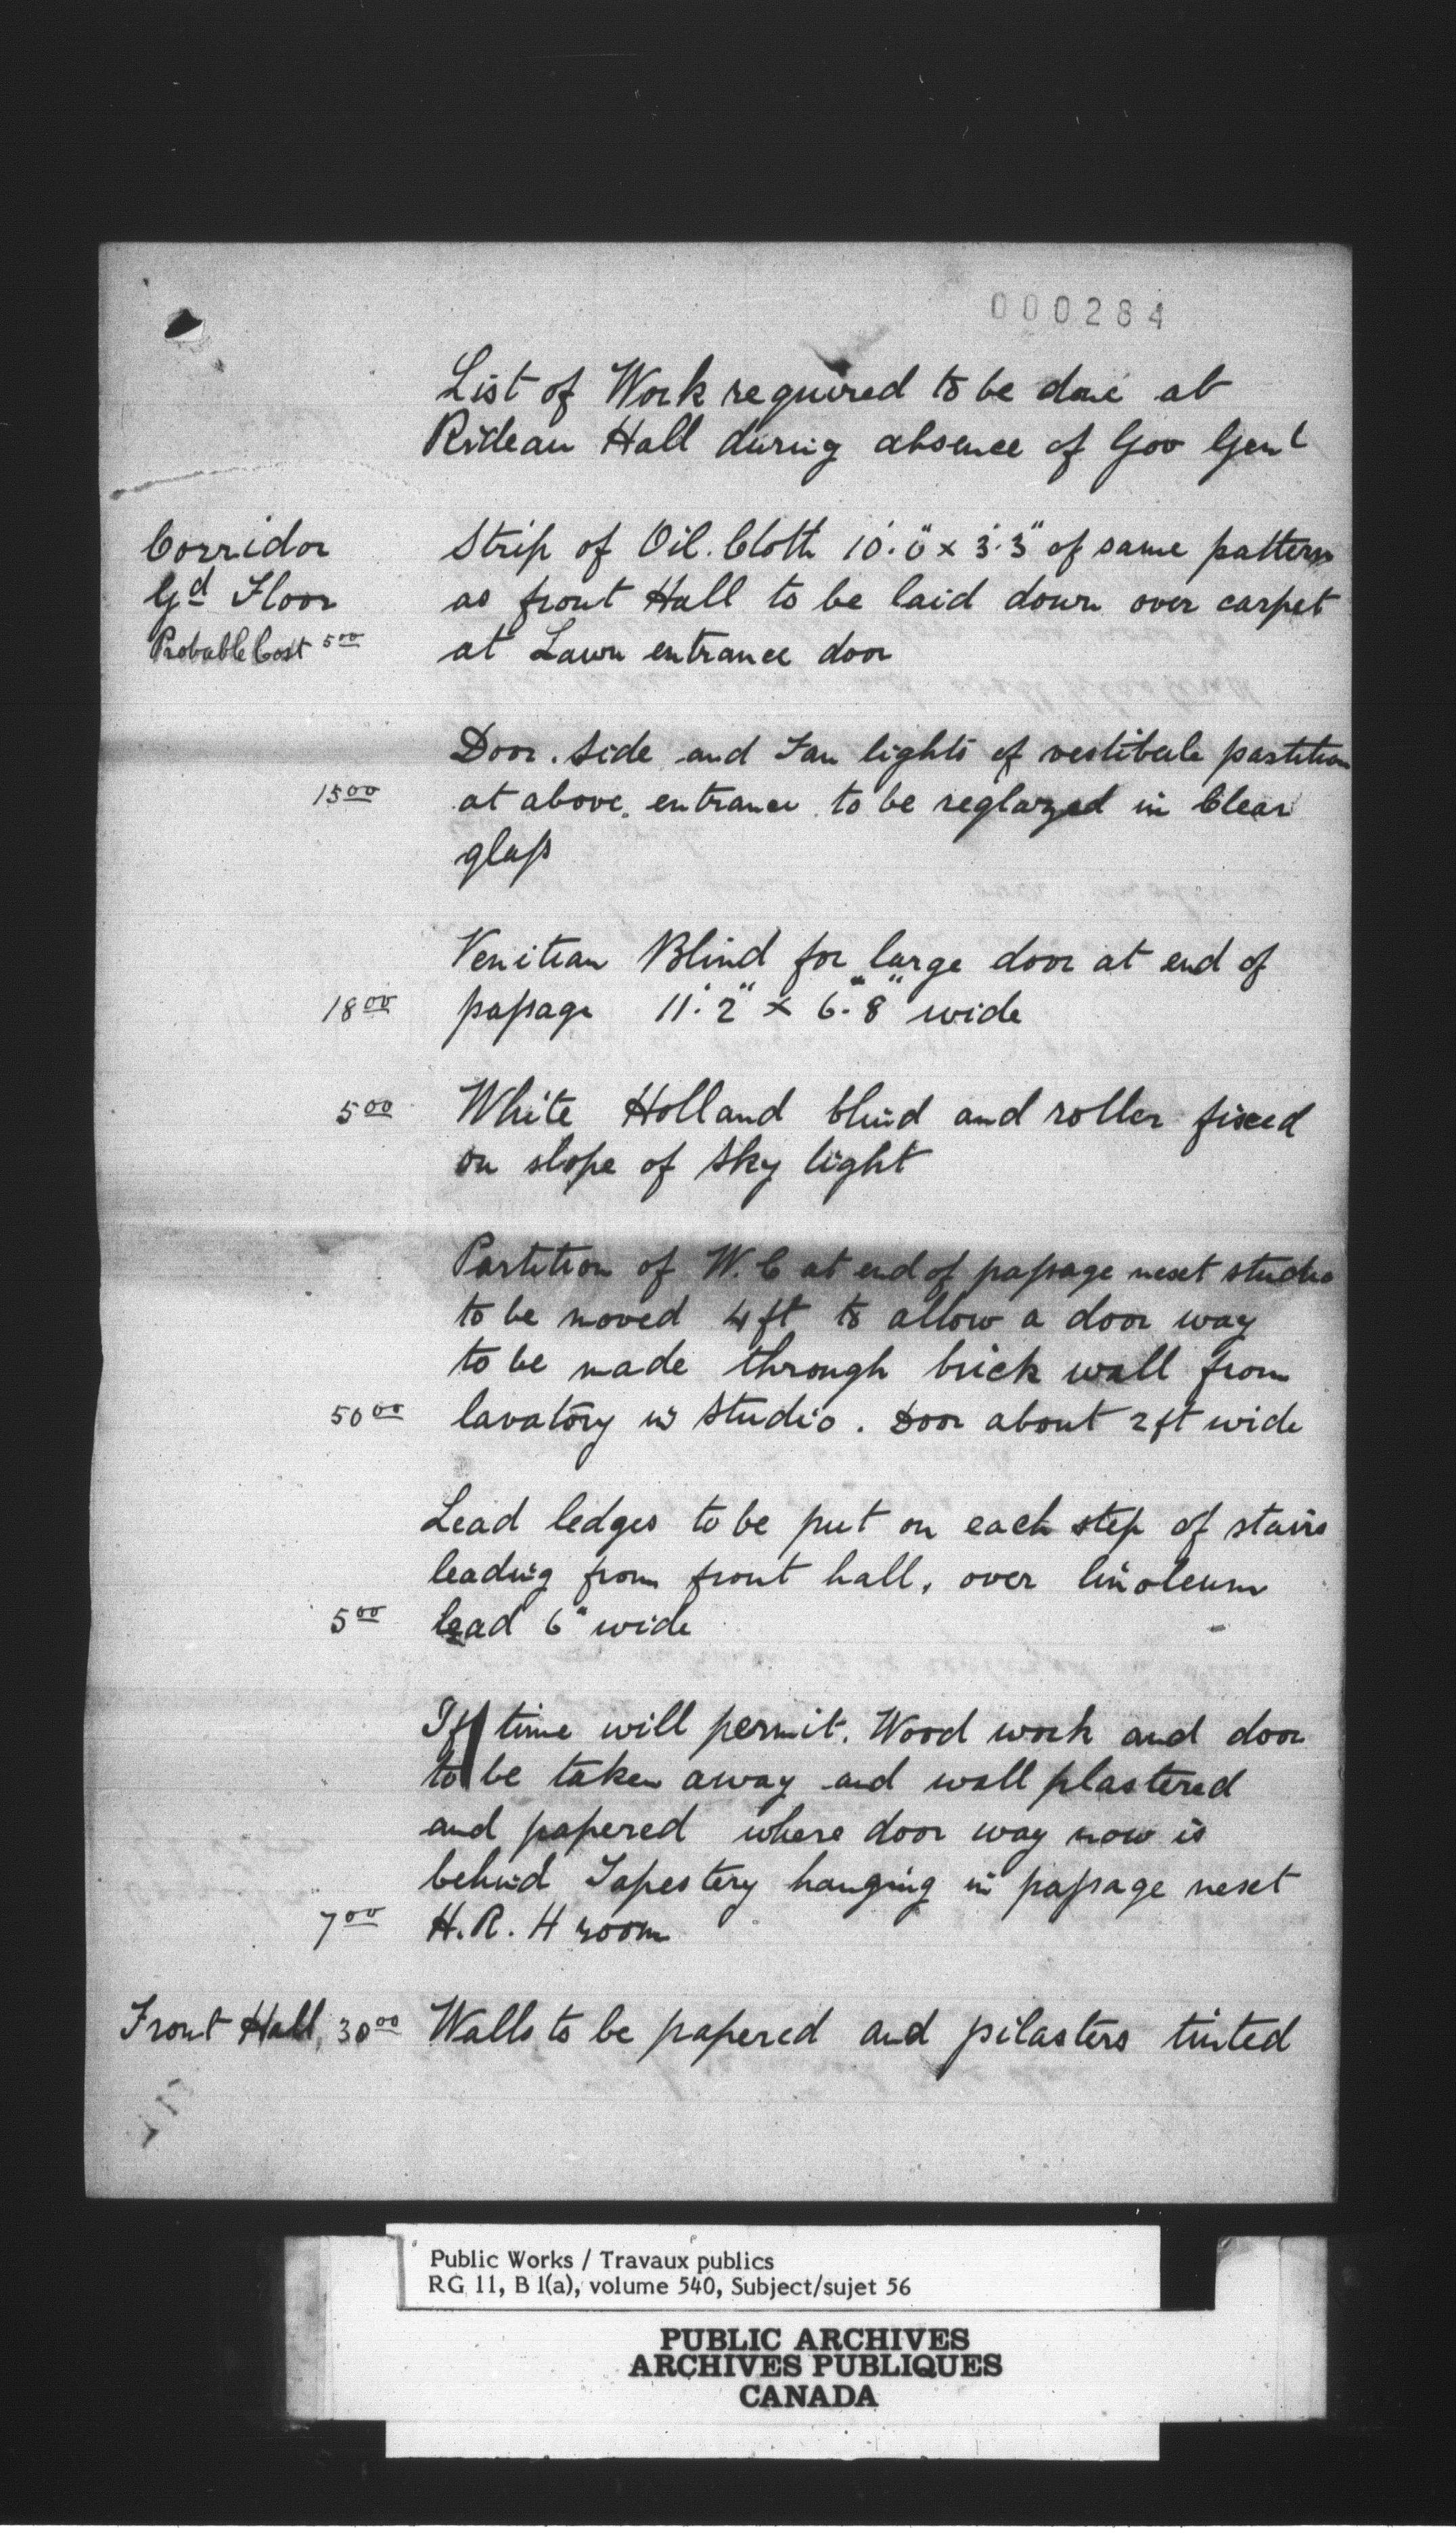 000284
List of Work required to be done at
Rideau Hall during absence of Gov Genl
Corridor
Gd Floor
Probable Cost 5 00
Strip of Oil. Cloth 10'.0" x 3'.3" of same pattern
as front Hall to be laid down over carpet
at Lawn entrance door
Door. Side and Fan lights of vestibule partition
15 00 at above. entrance. to be reglazed in Clear
glass
Venitian Blind for large door at end of
18 00 passage 11'.2" x 6'.8" wide
5 00 White Holland blind and roller fixed
on slope of Sky light
Partition of W.C at end of passage next studio
to be moved 4 ft to allow a door way
to be made through brick wall from
50 00 lavatory in Studio. Door about 2 ft wide
Lead ledges to be put on each step of stairs
leading from front hall, over linoleum
5 00 lead 6" wide
If time will permit. Wood work and door
to be taken away and wall plastered
and papered where door way now is
behind Tapestery hanging in passage next
7 00 H.R.H room
Front Hall, 30 00 Walls to be papered and pilasters tinted
Public Works / Travaux publics
RG 11, B 1(a), volume 540, Subject/sujet 56
PUBLIC ARCHIVES
ARCHIVES PUBLIQUES
CANADA